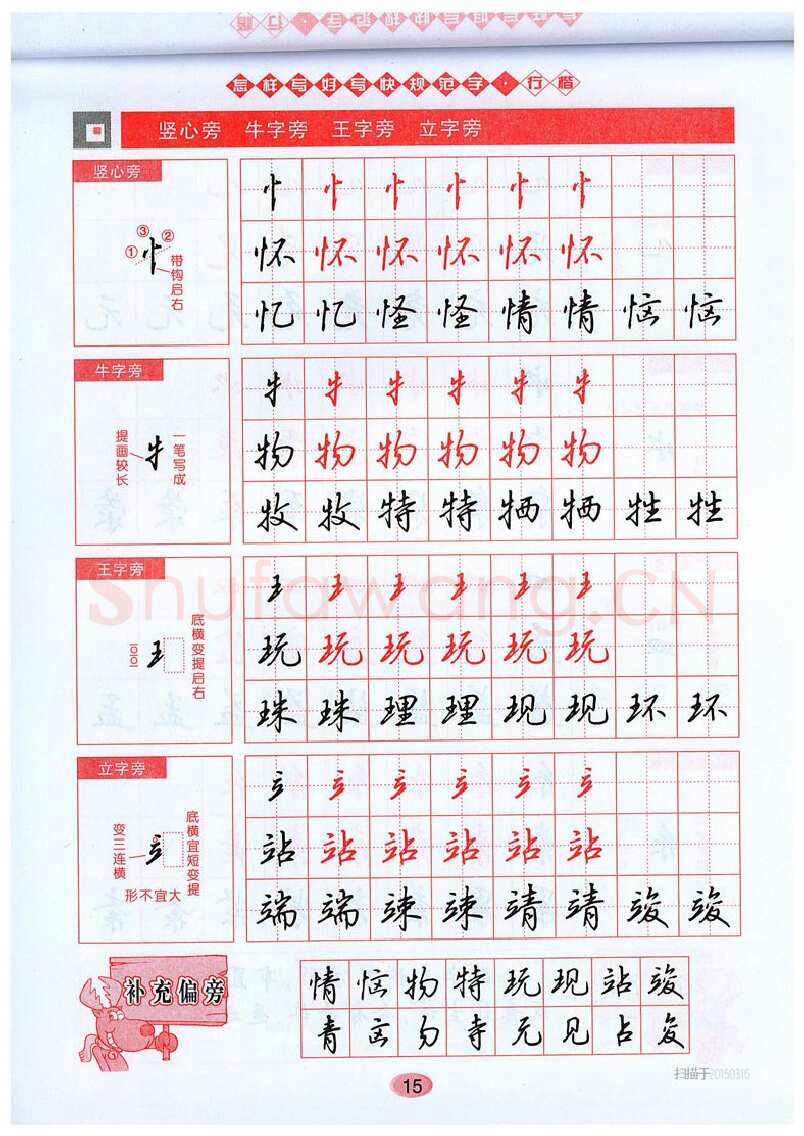 怎样写好写快规范字·行楷
竖心旁 牛字旁 王字旁 立字旁
竖心旁
① ③ ②
带钩启右
忄 忄 忄 忄 忄 忄
怀 怀 怀 怀 怀 怀
忆 忆 怪 怪 情 情 恼 恼
牛字旁
提画较长
一笔写成
牜 牜 牜 牜 牜 牜
物 物 物 物 物 物
牧 牧 特 特 牺 牺 牲 牲
王字旁
底横变提启右
王 王 王 王 王 王
玩 玩 玩 玩 玩 玩
珠 珠 理 理 现 现 环 环
立字旁
变三连横
底横宜短变提
形不宜大
立 立 立 立 立 立
站 站 站 站 站 站
端 端 竦 竦 靖 靖 竣 竣
补充偏旁
情 恼 物 特 玩 现 站 竣
青 㐫 勿 寺 元 见 占 夋
15
shufawang.CN
扫描于20150316